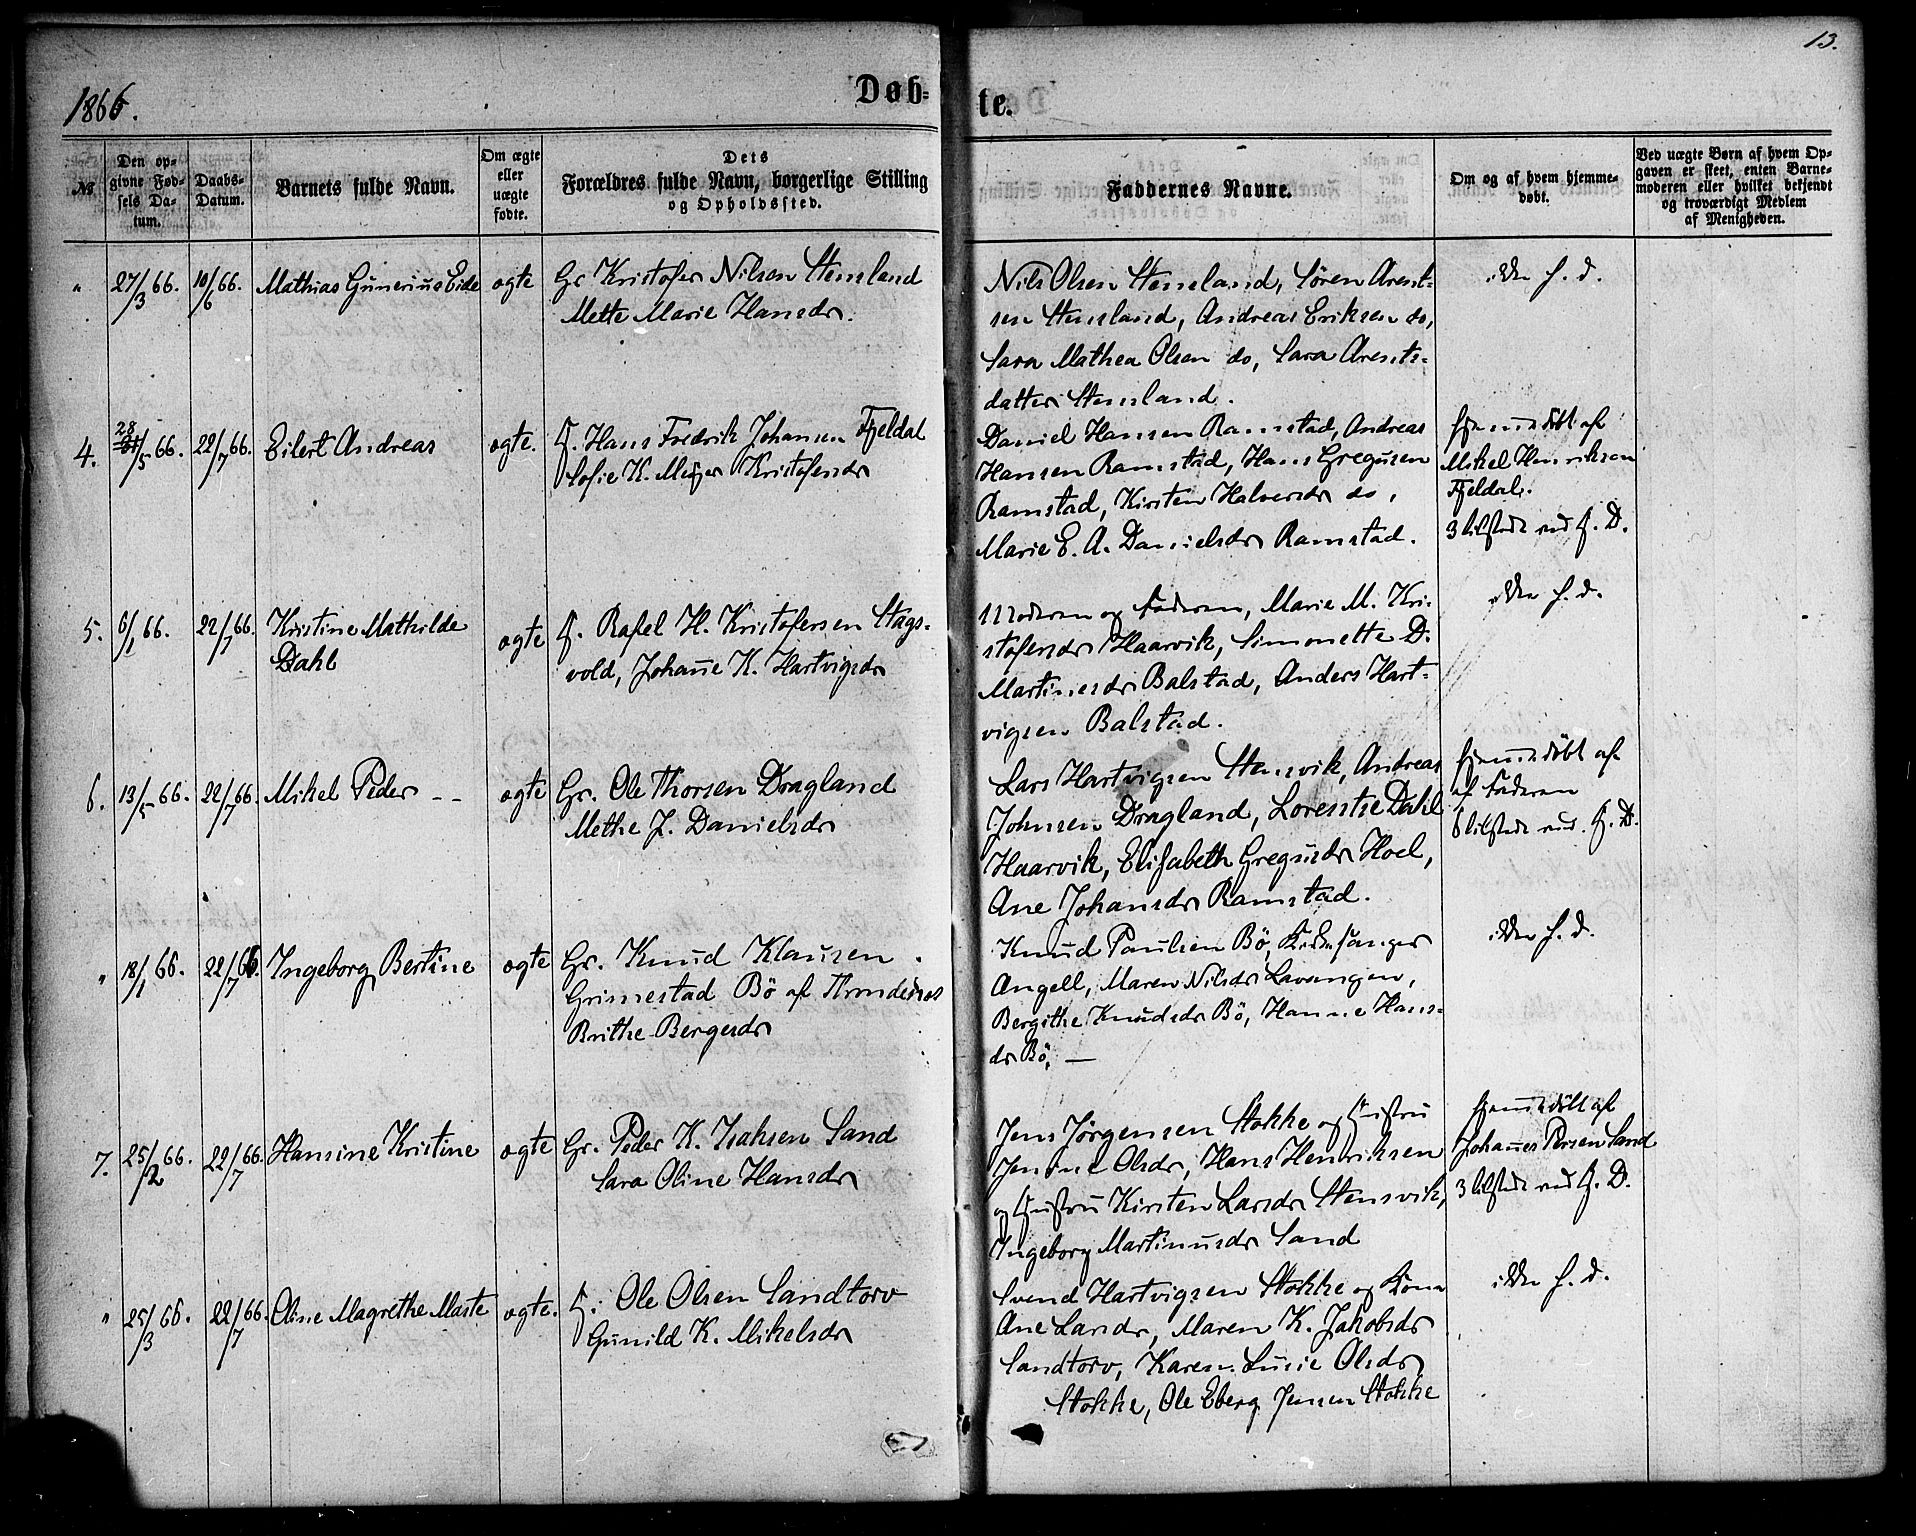 13.
1866.
Døb-
te.
№
Den op-
givne Fød-
sels Da-
tum.
Daabs-
Datum.
Barnets fulde Navn.
Om ægte
eller
uægte
fødte.
Dets
Forældres fulde Navn, borgerlige Stilling
og Opholdssted.
Faddernes Navne.
Om og af hvem hjemme-
døbt.
Ved uægte Børn af hvem Op-
gaven er skeet, enten Barne-
moderen eller hvilket bekjendt
og troværdigt Medlem
af Menigheden.
" 27/3 66. 10/6 66. Mathias Gunerius Eide ogte
Gr Kristofer Nilsen Stensland
Mette Marie Hansdr.
Nils Olsen Stensland, Søren Arent-
sen Stensland, Andreas Eriksen do,
Sara Mathea Olsen do, Sara Arents-
datter Stensland.
ikke h. d.
4. 28/5 66. 22/7 66. Eilert Andreas ogte.
G. Hans Fredrik Johansen Fjeldal
Sofie K. Meyer Kristofersdr
Daniel Hansen Ramstad, Andreas
Hansen Ramstad, Hans Gregusen
Ramstad, Kirsten Halvorsdr do,
Marie E. A. Danielsdr Ramstad.
hjemmedöbt af
Mikel Henriksen
Fjeldal.
3 tilstede ved H. D.
5. 6/1 66. 22/7 66. Kristine Mathilde
Dahl
ogte
G. Rafel H. Kristofersen Stags-
vold, Johane K. Hartvigsdr
Moderen og Faderen, Marie M. Kri-
stofersdr Haarvik, Simonette D.
Martinesdr Balstad, Anders Hart-
vigsen Balstad.
ikke h. d.
6. 13/5 66. 22/7 66. Mikel Peder - - ogte
Gr. Ole Thorsen Dragland
Methe J. Danielsdr
Lars Hartvigsen Stensvik, Andreas
Johnsen Dragland, Lorentse Dahl
Haarvik, Elisabeth Gregusdr Hoel,
Ane Johansdr Ramstad.
hjemmedöbt af
af Faderen
6 tilstede ved. H. D.
" 18/1 66. 22/7 66. Ingeborg Bertine ogte
Gr. Knud Klausen
Grimestad Bö af Throndenes
Brithe Bergesdr
Knud Paulsen Bö, Kirkesanger
Angell, Maren Nilsdr Lavangen,
Bergithe Knudsdr Bö, Hanne Hans-
dr Bö. —
ikke h. d.
7. 25/2 66. 22/7 66. Hansine Kristine ogte
Gr. Peder K. Isaksen Sand
Sara Oline Hansdr
Jens Jørgensen Stokke og Hustru
Jensine Olsdr, Hans Henriksen
og Hustru Kirsten Larsdr Stensvik,
Ingeborg Martinusdr Sand
hjemmedöbt af
Johannes Persen Sand
3 tilstede ved H. D.
" 25/3 66. 22/7 66. Oline Magrethe Marte ogte.
G. Ole Olsen Sandtorv
Gunild K. Mikelsdr
Svend Hartvigsen Stokke og Kone
Ane Larsdr, Maren K. Jakobsdr
Sandtorv, Karen Lusie Olsdr
Stokke, Ole Eberg Jensen Stokke
ikke h. d.